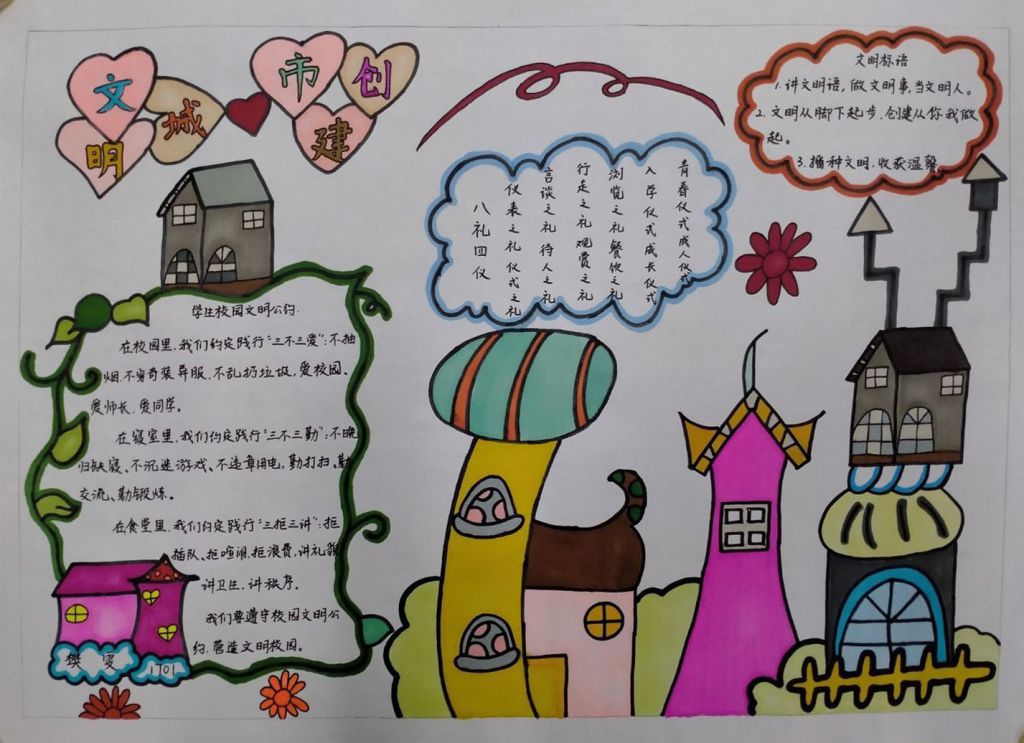 文明城市创建
学生校园文明公约.
在校园里,我们约定践行"三不三爱":不抽
烟.不穿奇装异服、不乱扔垃圾,爱校园、
爱师长、爱同学。
在寝室里,我们约定践行"三不三勤":不晚
归缺寝、不沉迷游戏、不违章用电,勤打扫、勤
交流、勤锻炼。
在食堂里,我们约定践行"三拒三讲":拒
插队、拒喧闹、拒浪费,讲礼貌
讲卫生、讲秩序。
我们要遵守校园文明公
约,营造文明校园。
1701
八礼四仪
仪表之礼 仪式之礼
言谈之礼 待人之礼
行走之礼 观赏之礼
浏览之礼 餐饮之礼
入学仪式 成长仪式
青春仪式 成人仪式
文明标语
1.讲文明语,做文明事,当文明人。
2.文明从脚下起步,创建从你我做
起。
3.播种文明.收获温馨